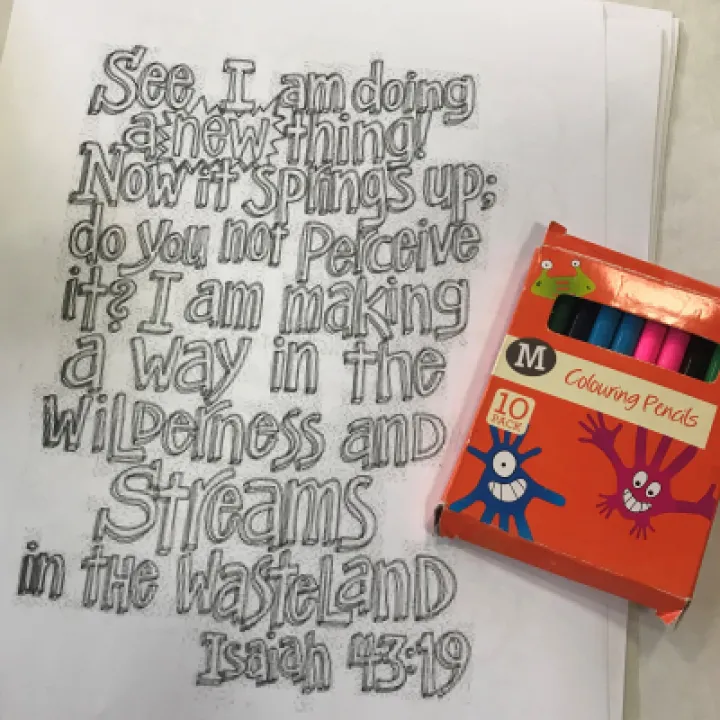 See, I am doing
a new thing!
Now it springs up;
do you not perceive
it? I am making
a way in the
WiLDerness and
Streams
in the WasteLanD
Isaiah 43:19
M
Colouring Pencils
10
PACK